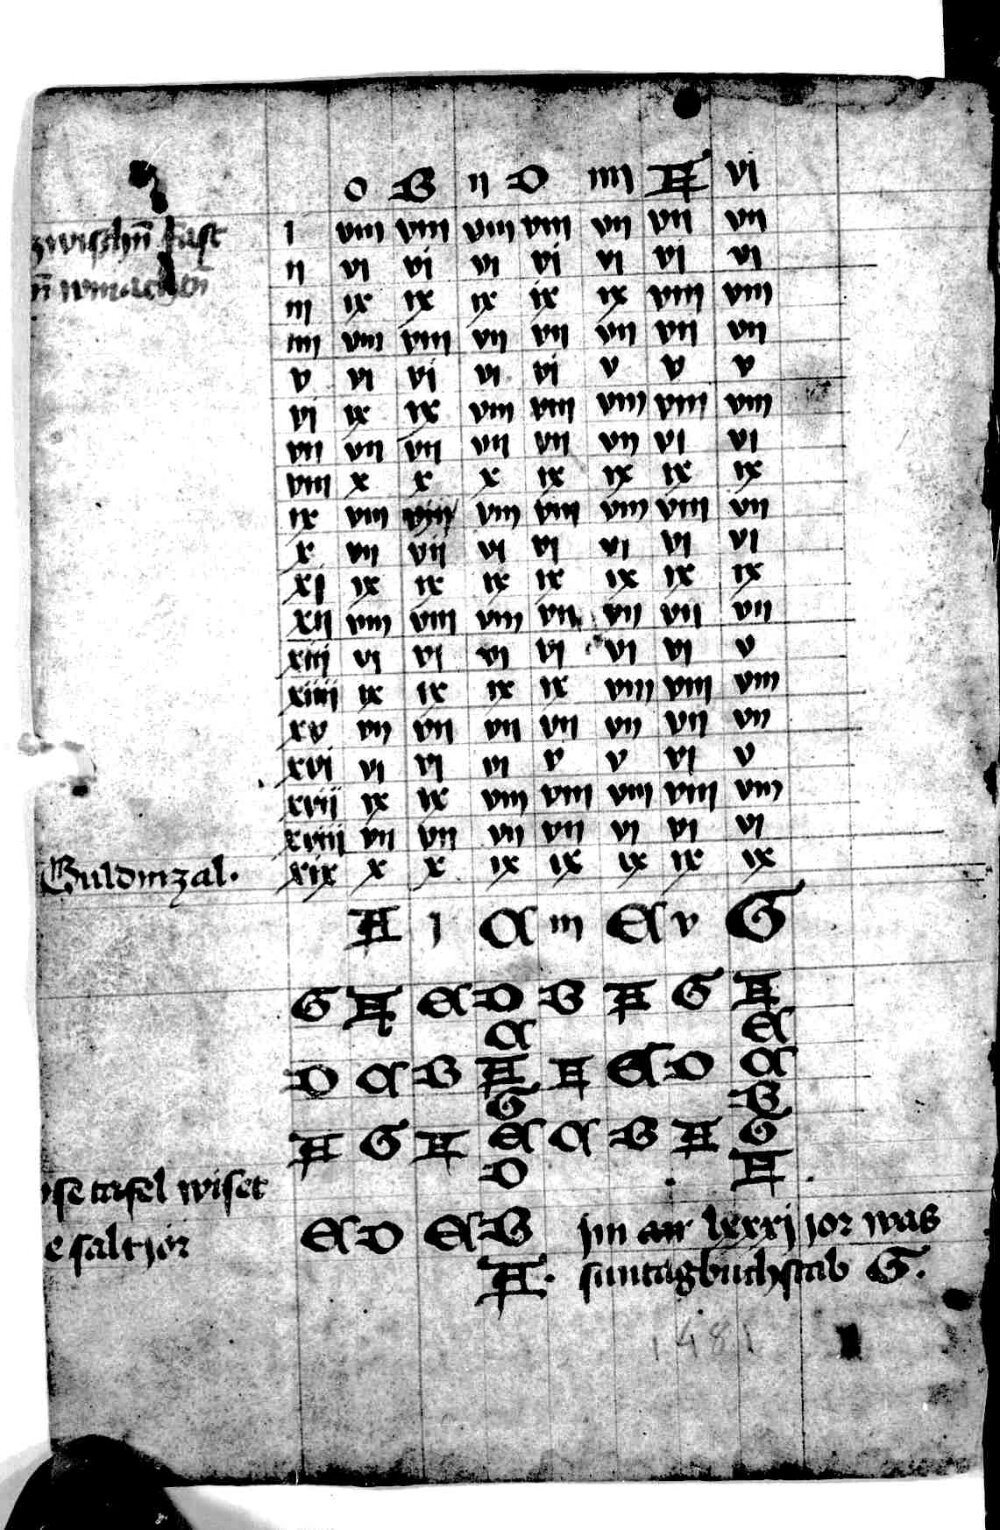 o B ij D iiij F vj
zwischn̄ fast j viij viij viij viij vij vij vij
ij vj vj vj vj vj vj vj
iij ix ix ix ix ix viij viij
iiij viij viij vij vij vij vij vij
v vj vj vj vj v v v
vj ix ix viij viij viij viij viij
vij vij vij vij vij vij vj vj
viij x x x ix ix ix ix
ix viij viij viij viij viij viij vij
x vij vij vj vj vj vj vj
xj ix ix ix ix ix ix ix
xij viij viij viij vij vij vij vij
xiij vj vj vj vj vj vj v
xiiij ix ix ix ix viij viij viij
xv vij vij vij vij vij vij vij
xvj vj vj vj v v vj v
xvij ix ix viij viij viij viij viij
xviij vij vij vij vij vj vj vj
Guldinzal. xix x x ix ix ix ix ix
A j C iij E v G
G F E D B A G F
C E
D C B A F E D C
G B
A G F E C B A G
D F
se tafel wiset
e saltjor E D C B jm lxxxj jor was
A. suntagbuchstab G.
1481